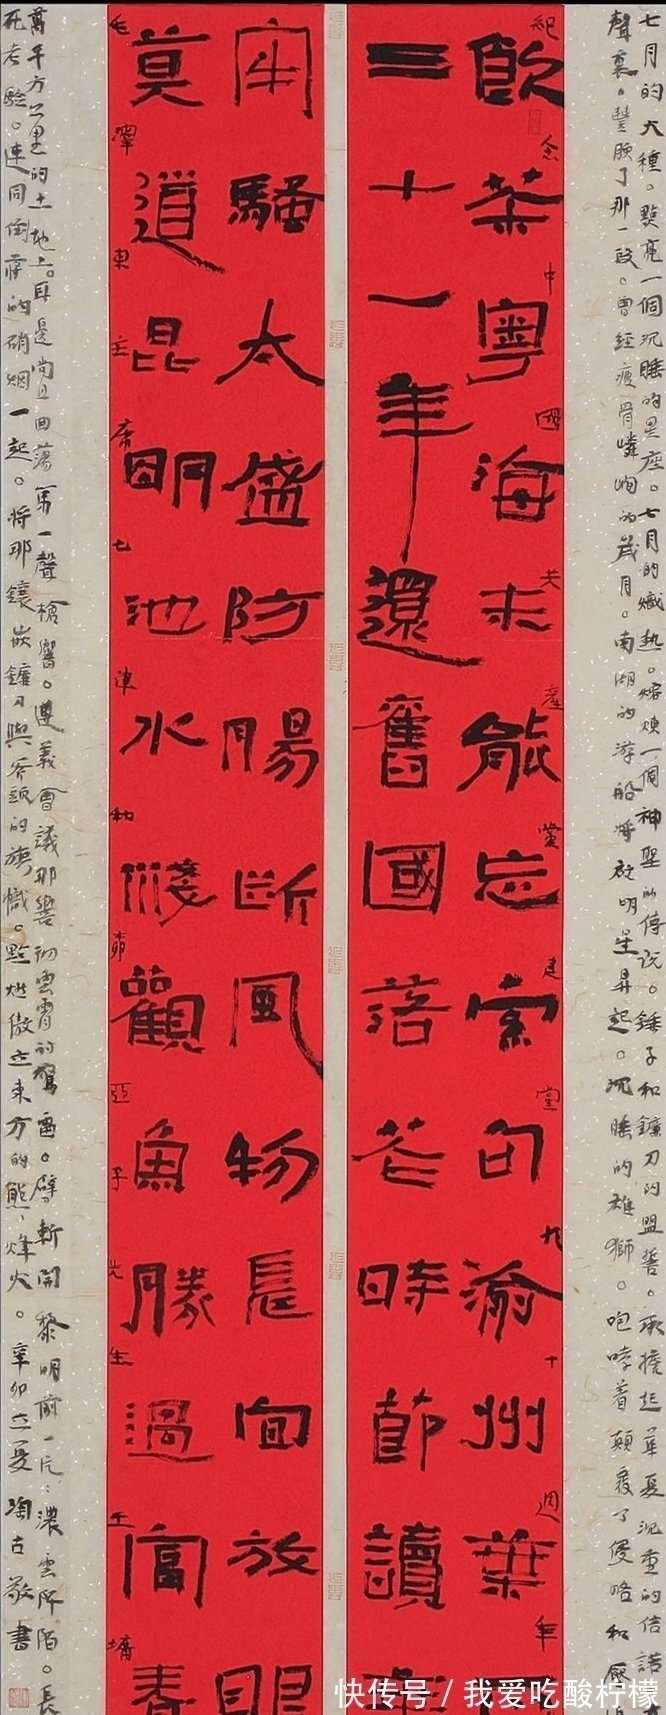 七月的火種。點亮一個沉睡的星座。七月的熾熱。熔煉一個神聖的傳說。錘子和鐮刀的盟誓。承擔起華夏沉重的信諾
那一段。曾經瘦骨嶙峋的歲月。南湖的游船將啟明星昇起。沉睡的雄獅。咆哮着顛覆了侵略和
紀念中國共產黨建黨九十週年
飲茶粵海未能忘索句渝州葉
三十一年還舊國落花時節讀
牢騷太盛防腸斷風物長宜放眼
莫道昆明池水淺觀魚勝過富春
毛澤東七律和柳亞子先生
萬平方公里的土地上。第一聲槍響。遵義會議那響徹雲霄的驚雷。劈斬開黎明前一片濃雲
死考驗。連同倒霉的硝烟一起。將那鑲嵌鐮刀與斧頭的旗幟。點燃傲立東方的熊熊烽火。辛卯立夏 陶古敬書
快传号/我爱吃酸柠檬